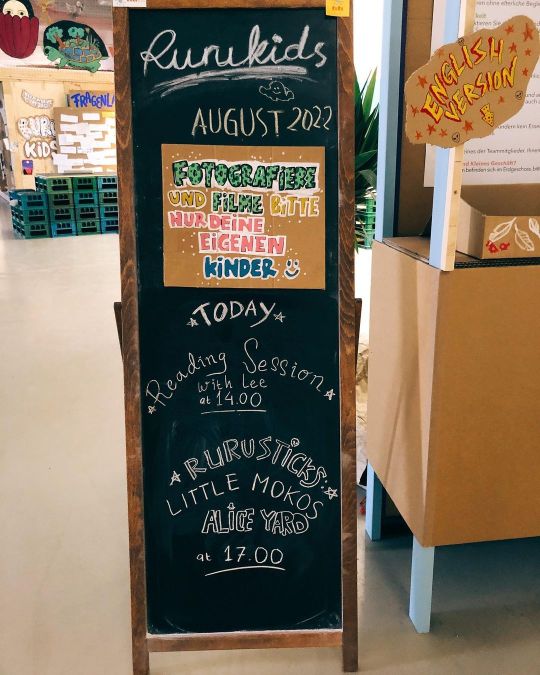 Rurukids
AUGUST 2022
FOTOGRAFIERE
UND FILME BITTE
NUR DEINE
EIGENEN
KINDER
TODAY
Reading Session
with Lee
at 14.00
RURUSTICKS:
LITTLE MOKOS
ALICE YARD
at 17.00
ENGLISH
VERSION
FRAGENLA
RURU
KIDS